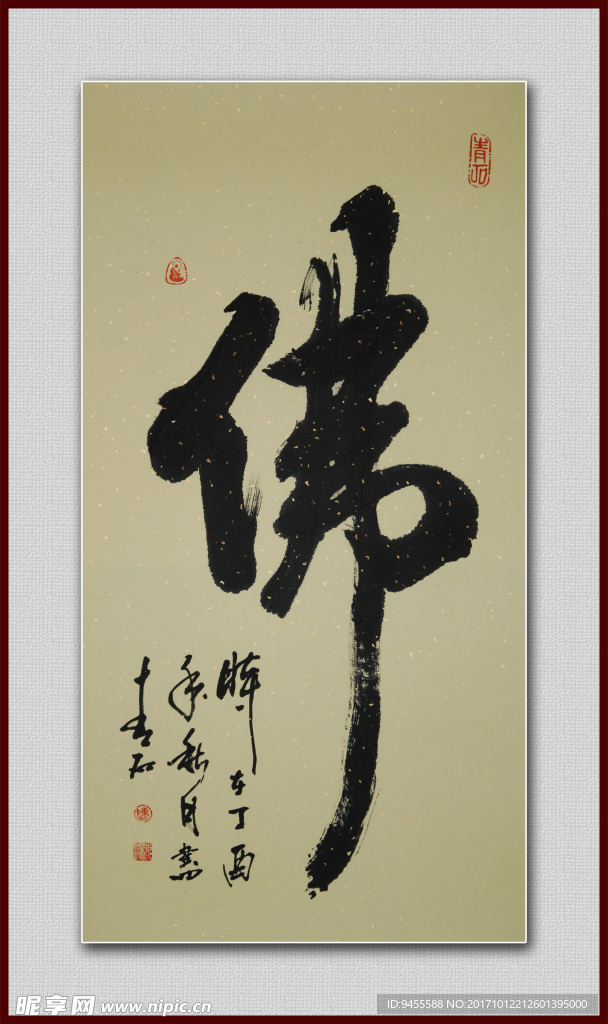 佛
青石
时在丁酉
年秋月书
十青石
昵享网 www.nipic.cn
ID:9455588 NO:20171012212601395000